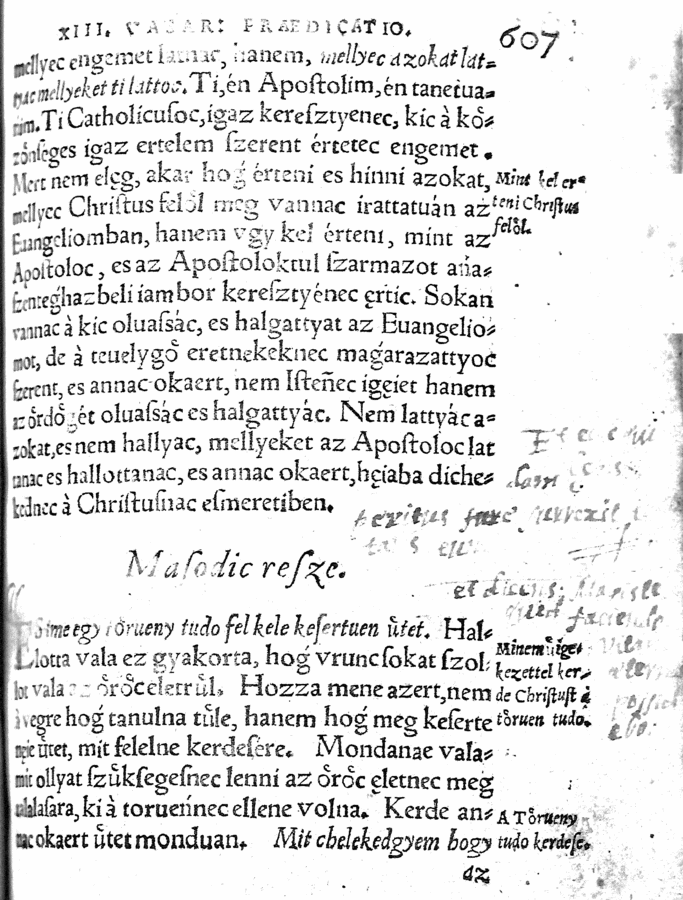 XIII. VASAR: PRÆDICATIO.
607
mellyec engemet latnac, hanem, mellyec azokat lat⸗
tyac mellyeket ti lattoc. Ti, én Apoſtolim, én tanetua⸗
nim. Ti Catholicuſoc, igaz kereſztyenec, kic à koͤ⸗
zoͤnſeges igaz ertelem ſzerent értetec engemet.
Mert nem eleg, akar hoǵ érteni es hinni azokat,
mellyec Chriſtus feloͤl meg vannac irattatuán az
Euangeliomban, hanem vgy kel érteni, mint az
Apoſtoloc, es az Apoſtoloktul ſzarmazot ańa⸗
ſzenteǵhazbeli iambor kereſztyénec ęrtic. Sokan
vannac à kic oluaſsác, es halgattyat az Euangelio⸗
mot, de à teuelygoͤ eretnekeknec maǵarazattyoc
ſzerent, es annac okaert, nem Iſteñec igęiet hanem
az oͤrdoͤgét oluaſsác es halgattyác. Nem lattyác a⸗
zokat, es nem hallyac, mellyeket az Apoſtoloc lat
tanac es hallottanac, es annac okaert, hęiaba diche⸗
kednec à Chriſtuſnac eſmeretiben.
Mint kel er⸗
teni Chriſtus
feloͤl.
Maſodic reſze.
Es ime egy toͤrueny tudo fel kele keſertuen uͤtet. Hal⸗
lotta vala ez gyakorta, hoǵ vruncſokat szol
lot vala az oͤroͤc eletruͤl. Hozza mene azert, nem
à vegre hoǵ tanulna tuͤle, hanem hoǵ meg keſerte
neie uͤtet, mit felelne kerdeſére. Mondanae vala⸗
mit ollyat ſzuͤkſegeſnec lenni az oͤroͤc ęletnec meg
valalaſara, ki à toruennec ellene volna. Kerde an⸗
nac okaert uͤtet monduan. Mit chelekedgyem hogy
az
Minemuͤ iget
kezettel ker⸗
de Chriſtuſt à
toͤruen tudo.
A Toͤrueny
tudo kerdeſe.